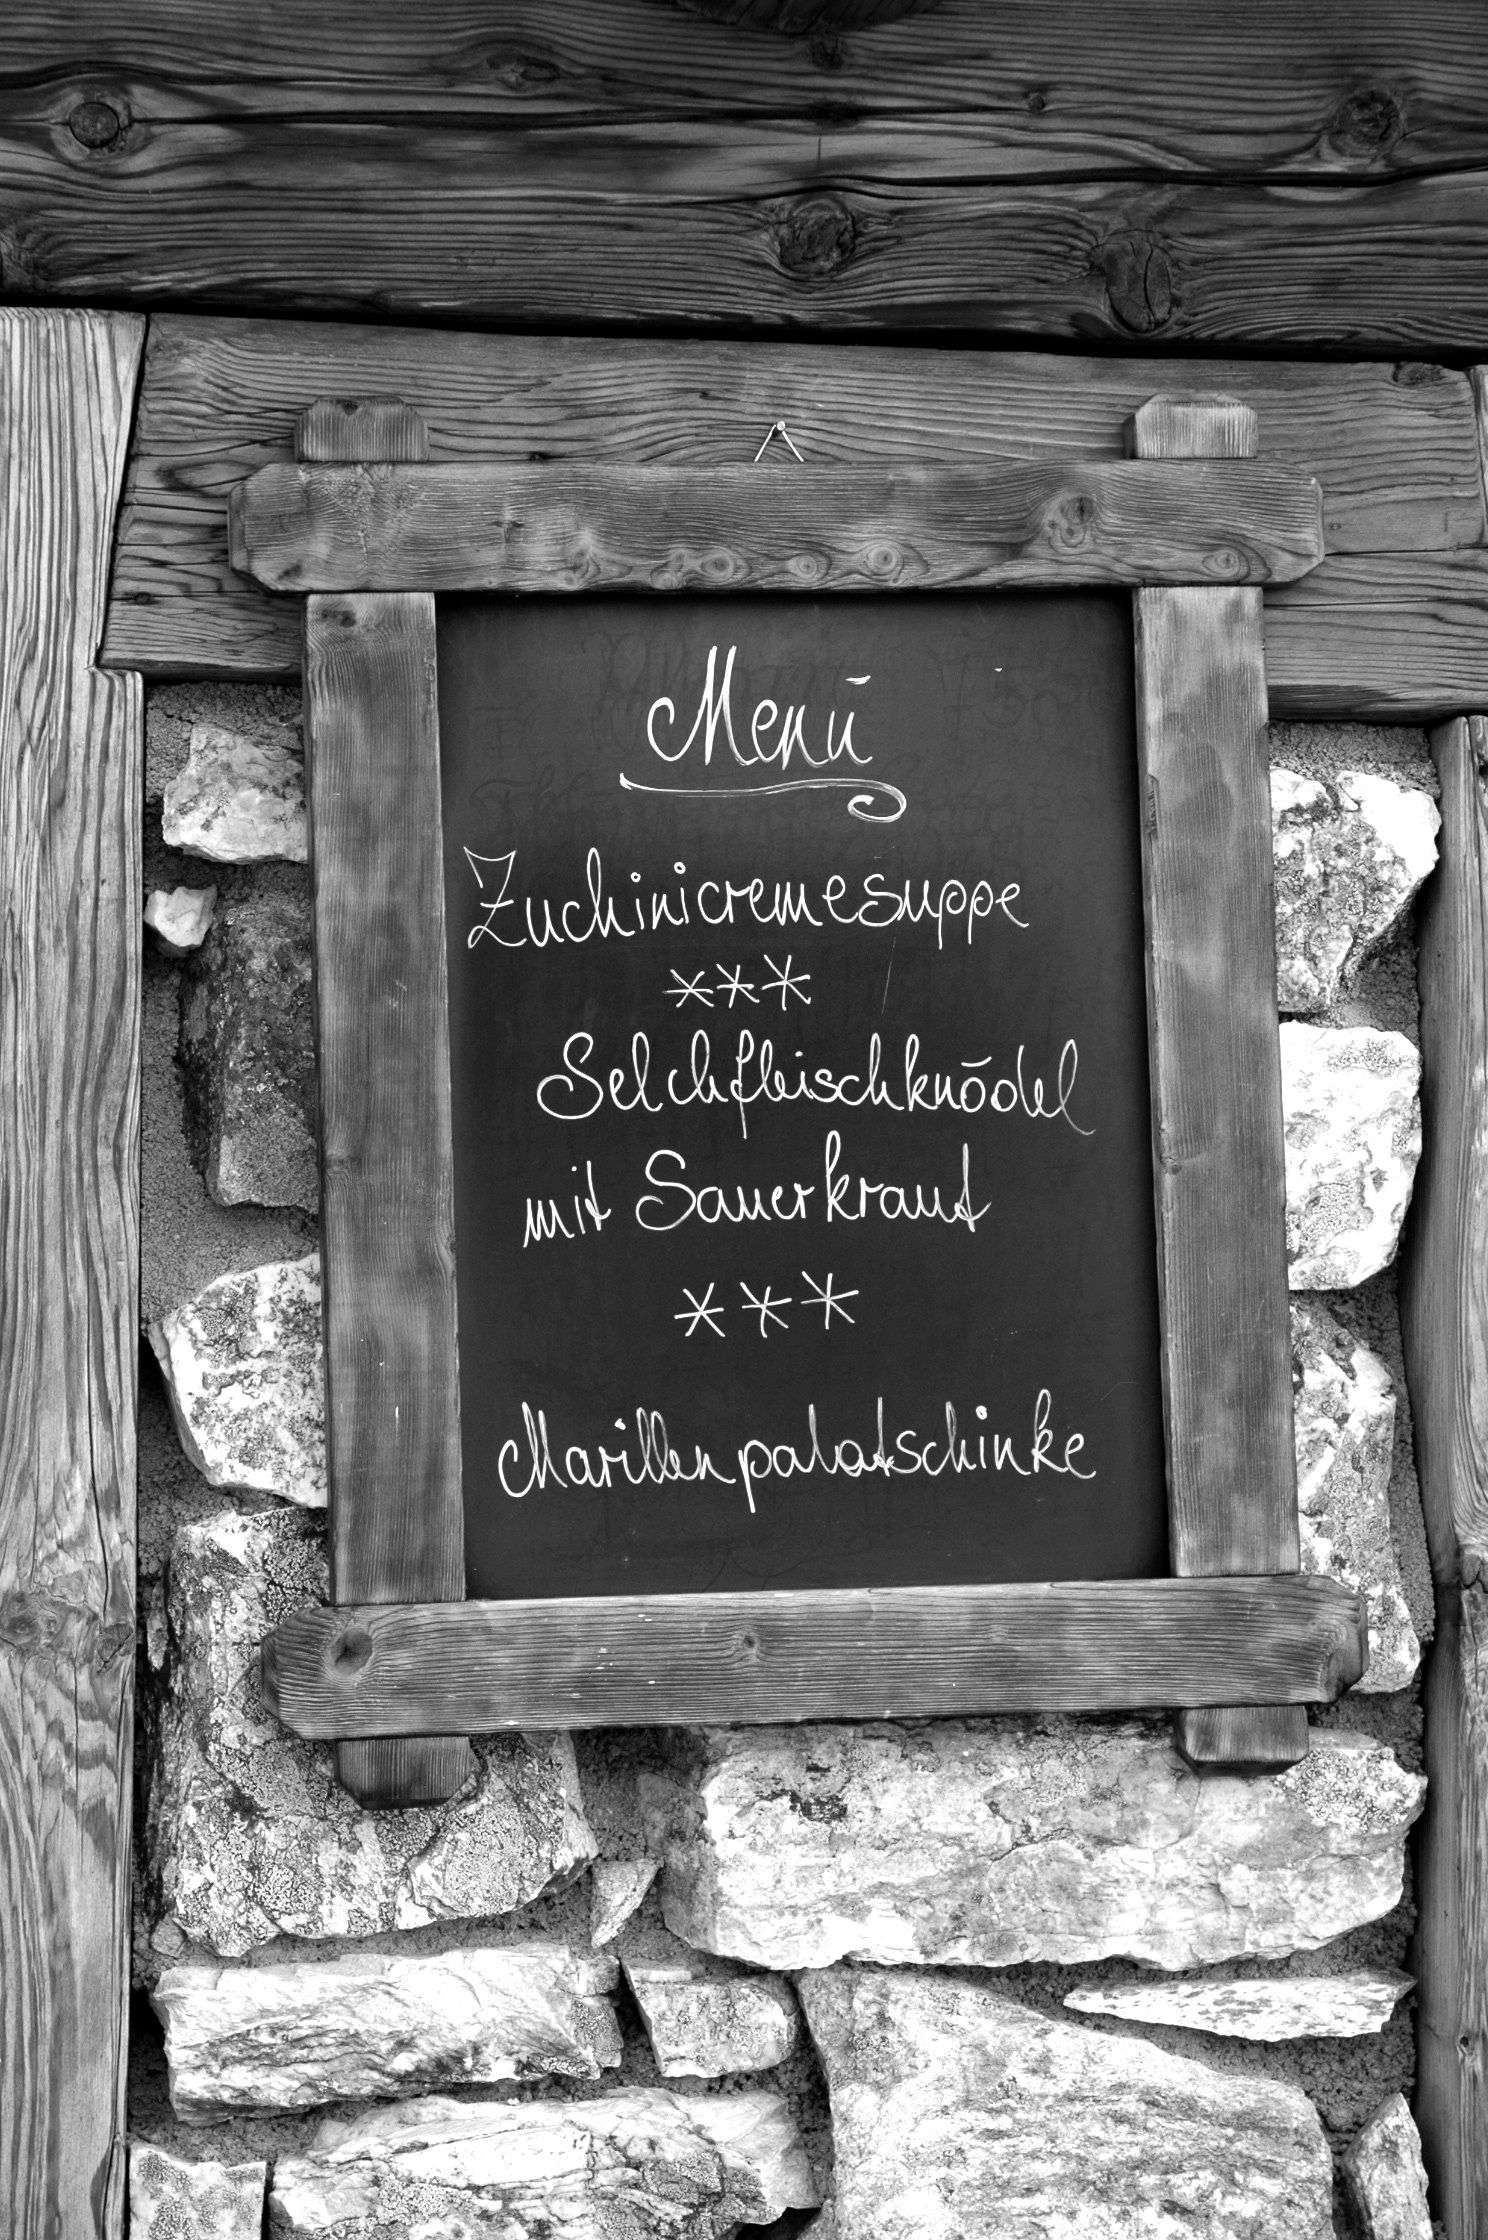 Menü
Zuchinicremesuppe
***
Selchfleischknödel
mit Sauerkraut
***
Marillenpalatschinke